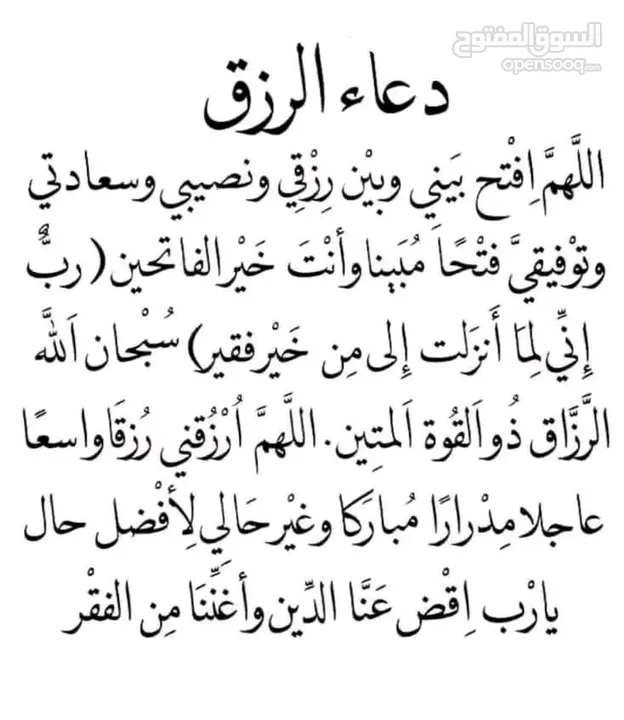 السوق المفتوح
opensooq.com
دعاء الرزق
اللَّهمَّ اِفْتح بَيني وبيْن رِزْقِي ونصيبي وسعادتي
وتوْفيقيَّ فتْحًا مُبَينا وأنْتَ خَيْر الفاتحين ( ربٌّ
إنِّي لِمَا أَنزَلت إلى مِن خَيْر فقير) سُبْحان اَللَّه
الرَّزَّاق ذُو اَلقُوة اَلمتِين. اللَّهمَّ اُرْزُقني رُزقًا واسعًا
عاجلا مِدْرارًا مُبارَكا وغيْر حَالي لِأفْضل حال
يارْب اِقْض عَنَّا الدِّين وأغَنِّنَا مِن الفقْر